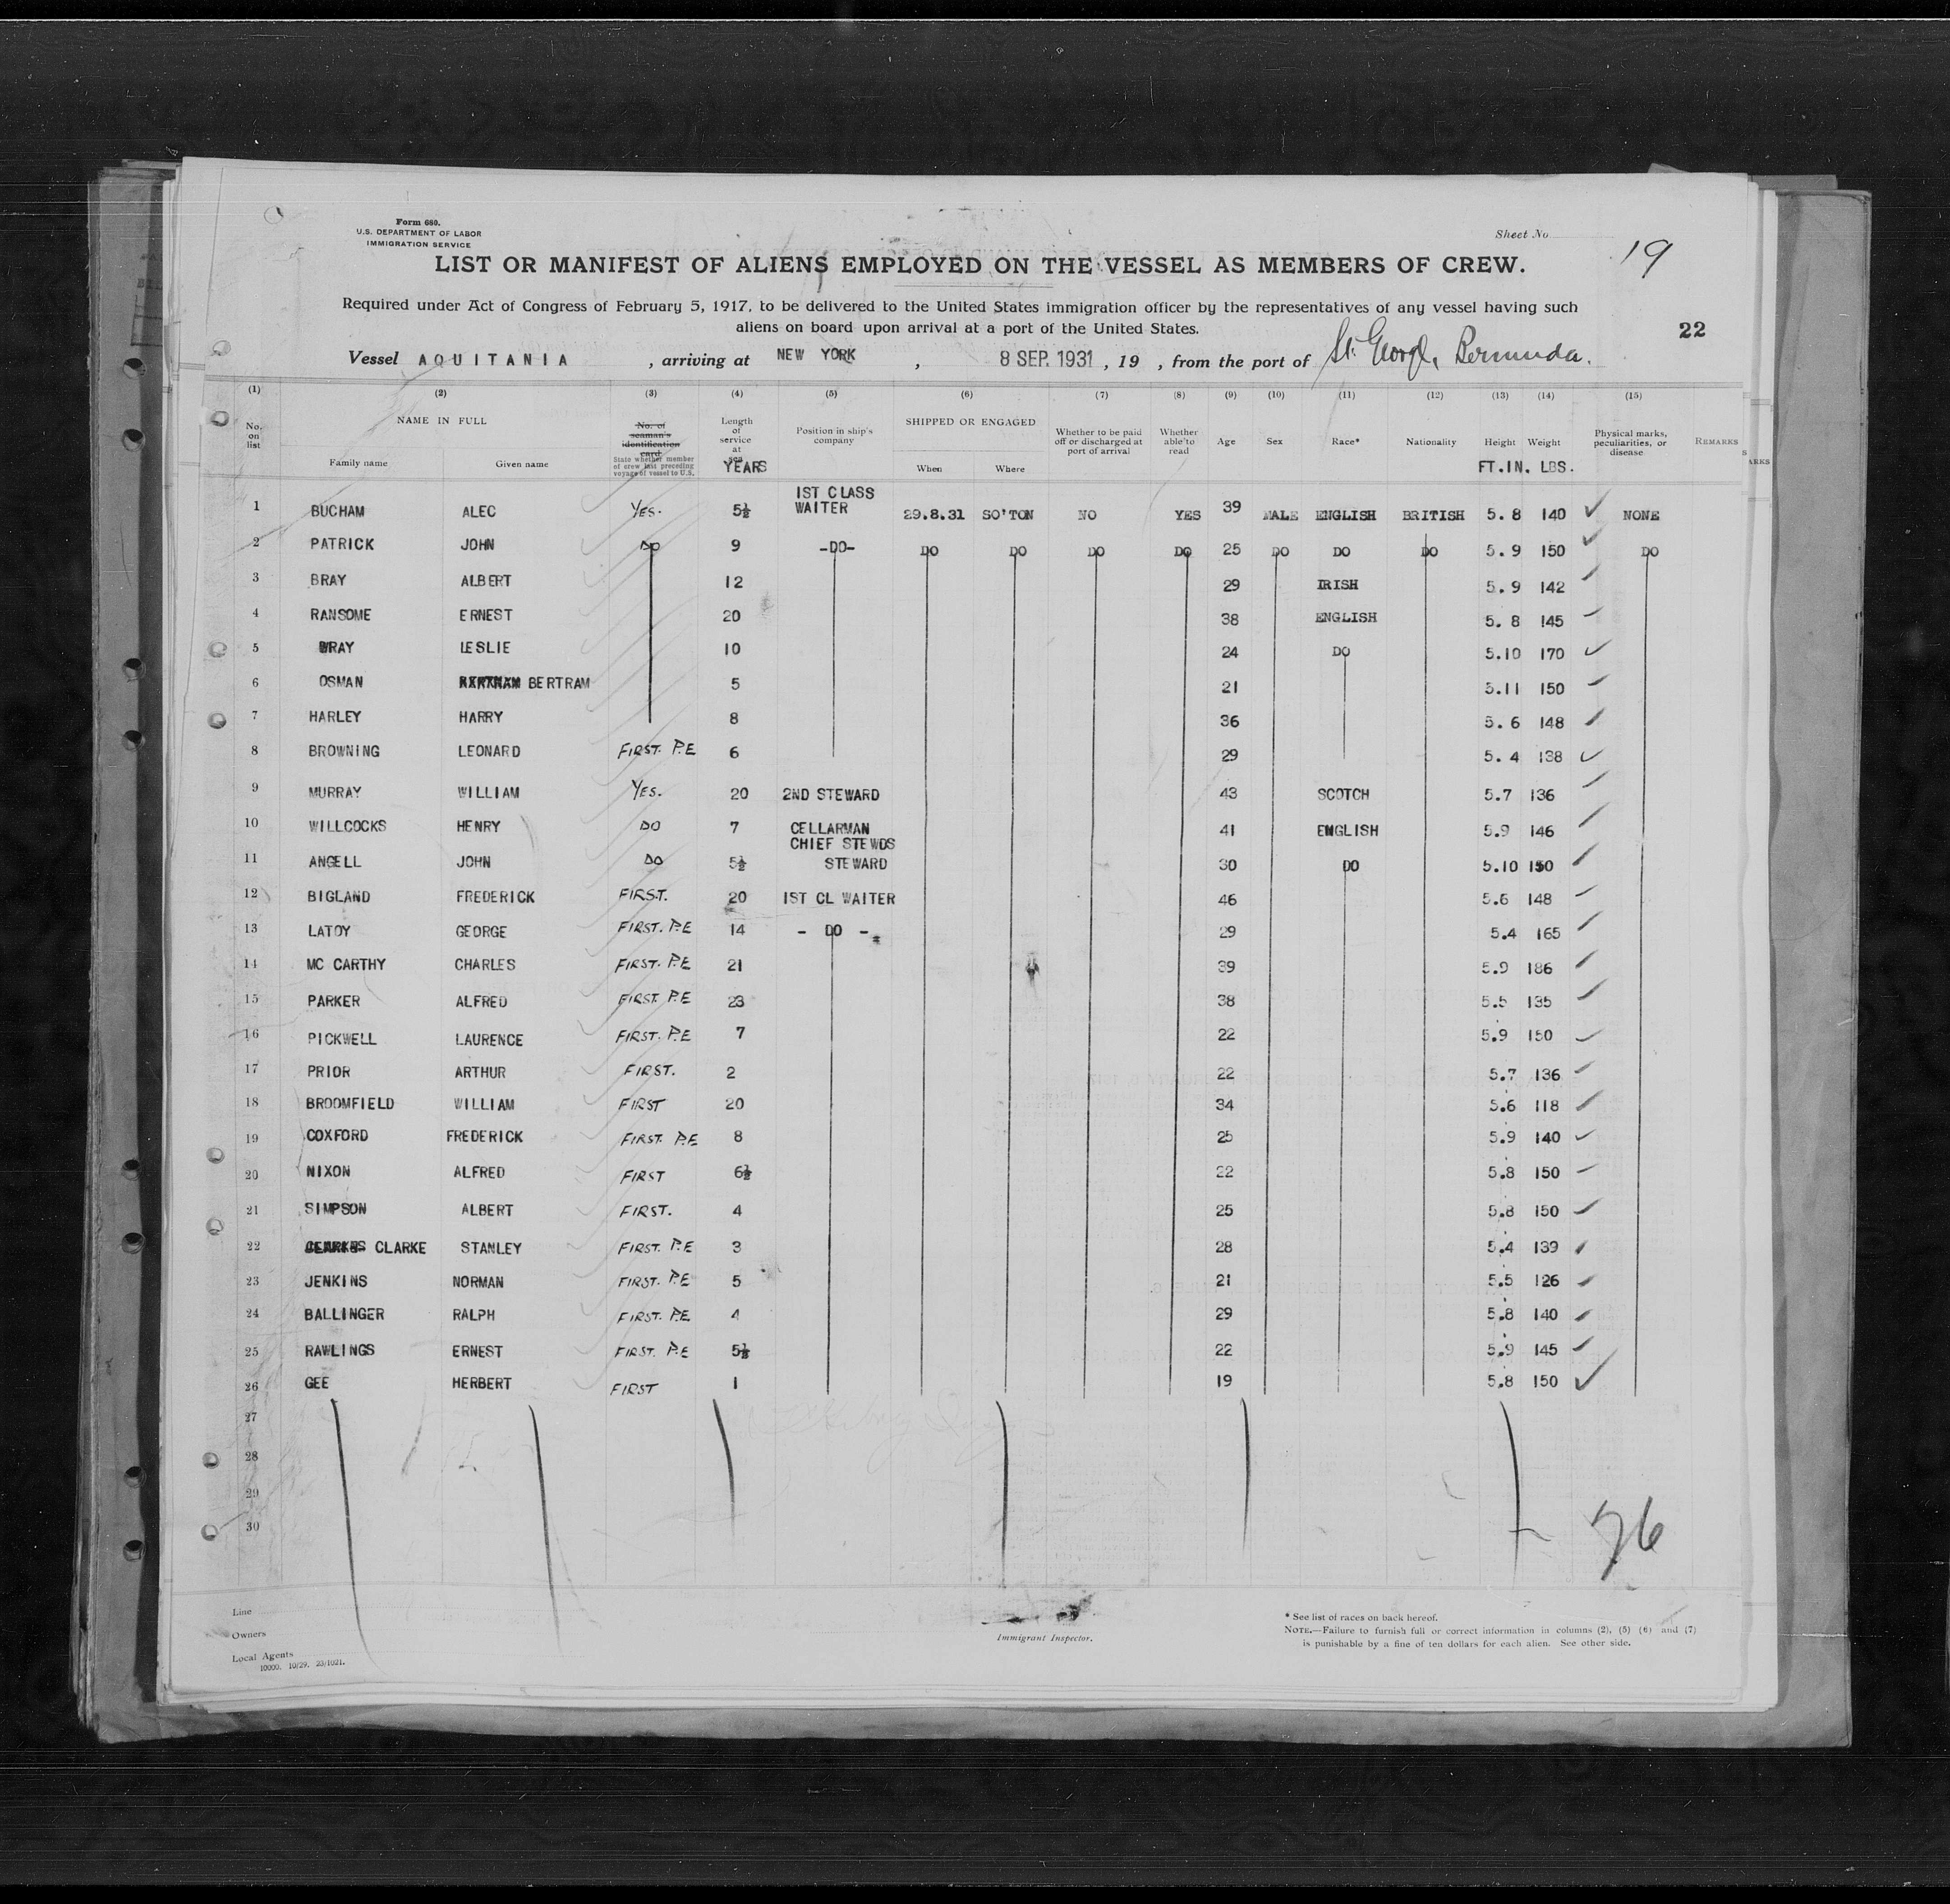 Form 680.
U.S. DEPARTMENT OF LABOR
IMMIGRATION SERVICE
Sheet No
19
LIST OR MANIFEST OF ALIENS EMPLOYED ON THE VESSEL AS MEMBERS OF CREW.
Required under Act of Congress of February 5, 1917, to be delivered to the United States immigration officer by the representatives of any vessel having such
aliens on board upon arrival at a port of the United States.
22
Vessel AQUITANIA , arriving at NEW YORK , 8 SEP. 1931 , 19 , from the port of St. George, Bermuda.
(1) (2) (3) (4) (5) (6) (7) (8) (9) (10) (11) (12) (13) (14) (15)
No. on list NAME IN FULL Family name Given name No. of seaman's identification card State whether member of crew last preceding voyage of vessel to U.S. Length of service at sea YEARS Position in ship's company SHIPPED OR ENGAGED When Where Whether to be paid off or discharged at port of arrival Whether able to read Age Sex Race* Nationality Height FT.IN. Weight LBS. Physical marks, peculiarities, or disease REMARKS
1 BUCHAM ALEC YES. 5½ 1ST CLASS WAITER 29.8.31 SO'TON NO YES 39 MALE ENGLISH BRITISH 5.8 140 NONE
2 PATRICK JOHN DO 9 -DO- DO DO DO DO 25 DO DO DO 5.9 150 DO
3 BRAY ALBERT 12 29 IRISH 5.9 142
4 RANSOME ERNEST 20 38 ENGLISH 5.8 145
5 WRAY LESLIE 10 24 DO 5.10 170
6 OSMAN BERTRAM 5 21 5.11 150
7 HARLEY HARRY 8 36 5.6 148
8 BROWNING LEONARD FIRST. P.E 6 29 5.4 138
9 MURRAY WILLIAM YES. 20 2ND STEWARD 43 SCOTCH 5.7 136
10 WILLCOCKS HENRY DO 7 CELLARMAN 41 ENGLISH 5.9 146
11 ANGELL JOHN DO 5½ CHIEF STEWDS STEWARD 30 DO 5.10 150
12 BIGLAND FREDERICK FIRST. 20 1ST CL WAITER 46 5.6 148
13 LATOY GEORGE FIRST. P.E 14 - DO - 29 5.4 165
14 MC CARTHY CHARLES FIRST. P.E 21 39 5.9 186
15 PARKER ALFRED FIRST. P.E 23 38 5.5 135
16 PICKWELL LAURENCE FIRST. P.E 7 22 5.9 150
17 PRIOR ARTHUR FIRST. 2 22 5.7 136
18 BROOMFIELD WILLIAM FIRST 20 34 5.6 118
19 COXFORD FREDERICK FIRST. P.E 8 25 5.9 140
20 NIXON ALFRED FIRST 6½ 22 5.8 150
21 SIMPSON ALBERT FIRST. 4 25 5.8 150
22 CLARKE STANLEY FIRST. P.E 3 28 5.4 139
23 JENKINS NORMAN FIRST. P.E 5 21 5.5 126
24 BALLINGER RALPH FIRST. P.E 4 29 5.8 140
25 RAWLINGS ERNEST FIRST. P.E 5½ 22 5.9 145
26 GEE HERBERT FIRST 1 19 5.8 150
27
28
29
30
76
Line
Owners
Local Agents
10000. 10/29. 23/1021.
Immigrant Inspector.
* See list of races on back hereof.
NOTE.—Failure to furnish full or correct information in columns (2), (5) (6) and (7)
is punishable by a fine of ten dollars for each alien. See other side.